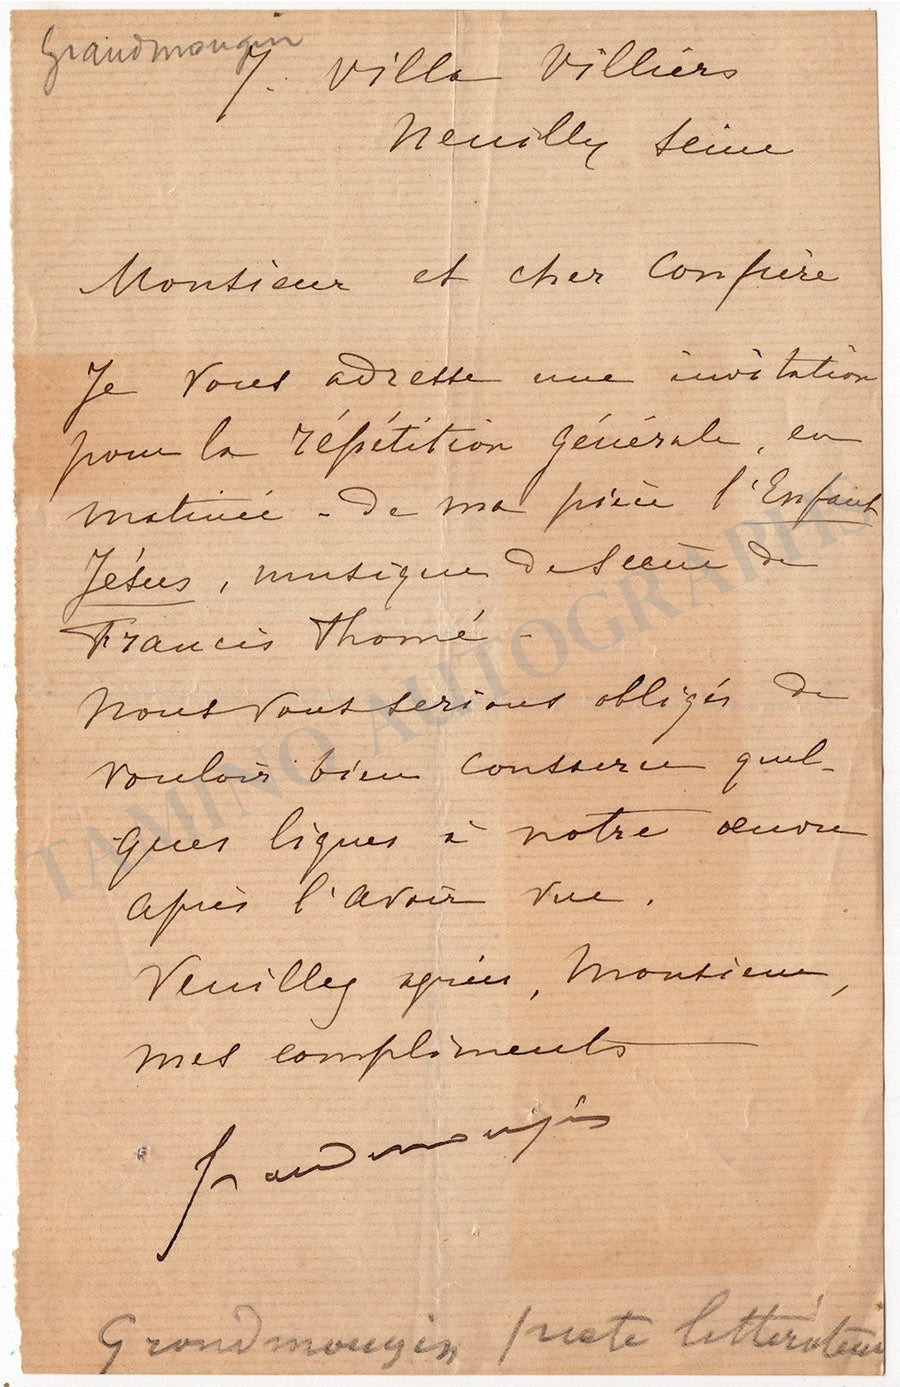 Grandmougin
7. Villa Villiers
Neuilly Seine
Monsieur et cher Confrère
Je vous adresse une invitation
pour la répétition générale, en
matinée - de ma pièce l'Enfant
Jésus, musique de Scène de
Francis Thomé -
Nous vous serions obligés de
vouloir bien consacrer quel-
ques lignes à notre œuvre
après l'avoir vue.
Veuillez agréer, Monsieur,
mes compliments
Grandmougin
Grandmougin poète littérateur
TAMINO AUTOGRAPHS